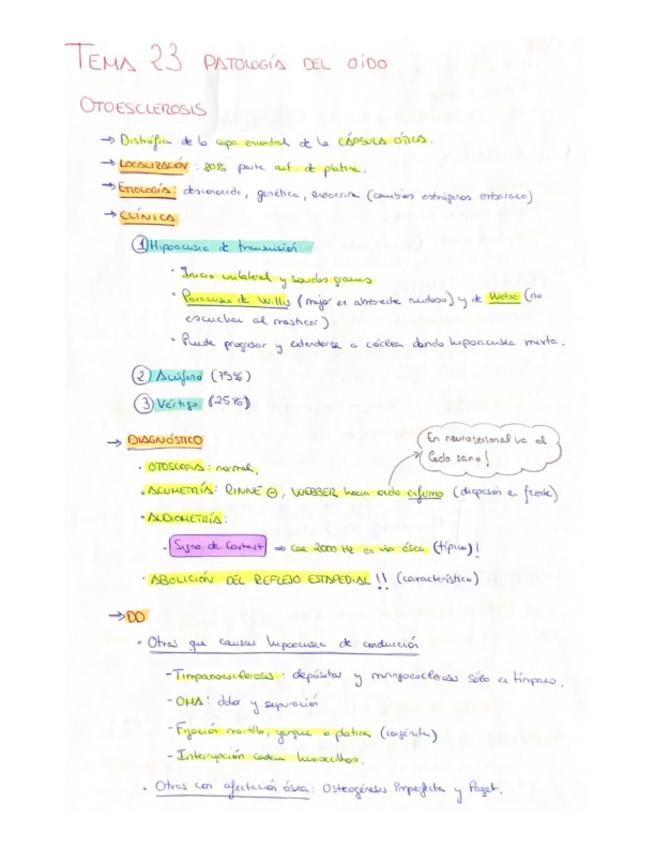 TEMA 23 PATOLOGÍA DEL OÍDO
OTOESCLEROSIS
→ Distrofia de la capa encondral de la CÁPSULA ÓTICA.
→ LOCALIZACIÓN: 80% parte ant. de platina.
→ ETIOLOGÍA: desconocida, genética, endocrina (cambios estrógenos embarazo)
→ CLÍNICA
① Hipoacusia de transmisión
· Inicio unilateral y sonidos graves
· Paracusia de Willis (mejor en ambiente ruidoso) y de Weber (no
escuchar al masticar)
· Puede progresar y extenderse a cóclea dando hipoacusia mixta.
② Acúfeno (75%)
③ Vértigo (25%)
→ DIAGNÓSTICO
En neurosensorial va al
lado sano!
· OTOSCOPIA: normal,
· ACUMETRÍA: RINNE ⊖, WEBBER hacia oído enfermo (diapasón en frente)
· AUDIOMETRÍA:
- Signo de Carhart ⇒ cae 2000 Hz en vía ósea (típico)!
· ABOLICIÓN DEL REFLEJO ESTAPEDIAL!! (característico)
→ DD
· Otras que causan hipoacusia de conducción
- Timpanoesclerosis: depósitos y miringoesclerosis sólo en tímpano.
- OMA: dolor y supuración
- Fijación martillo, yunque o platina (congénita)
- Interrupción cadena huesecillos.
· Otras con afectación ósea: Osteogénesis Imperfecta y Paget.